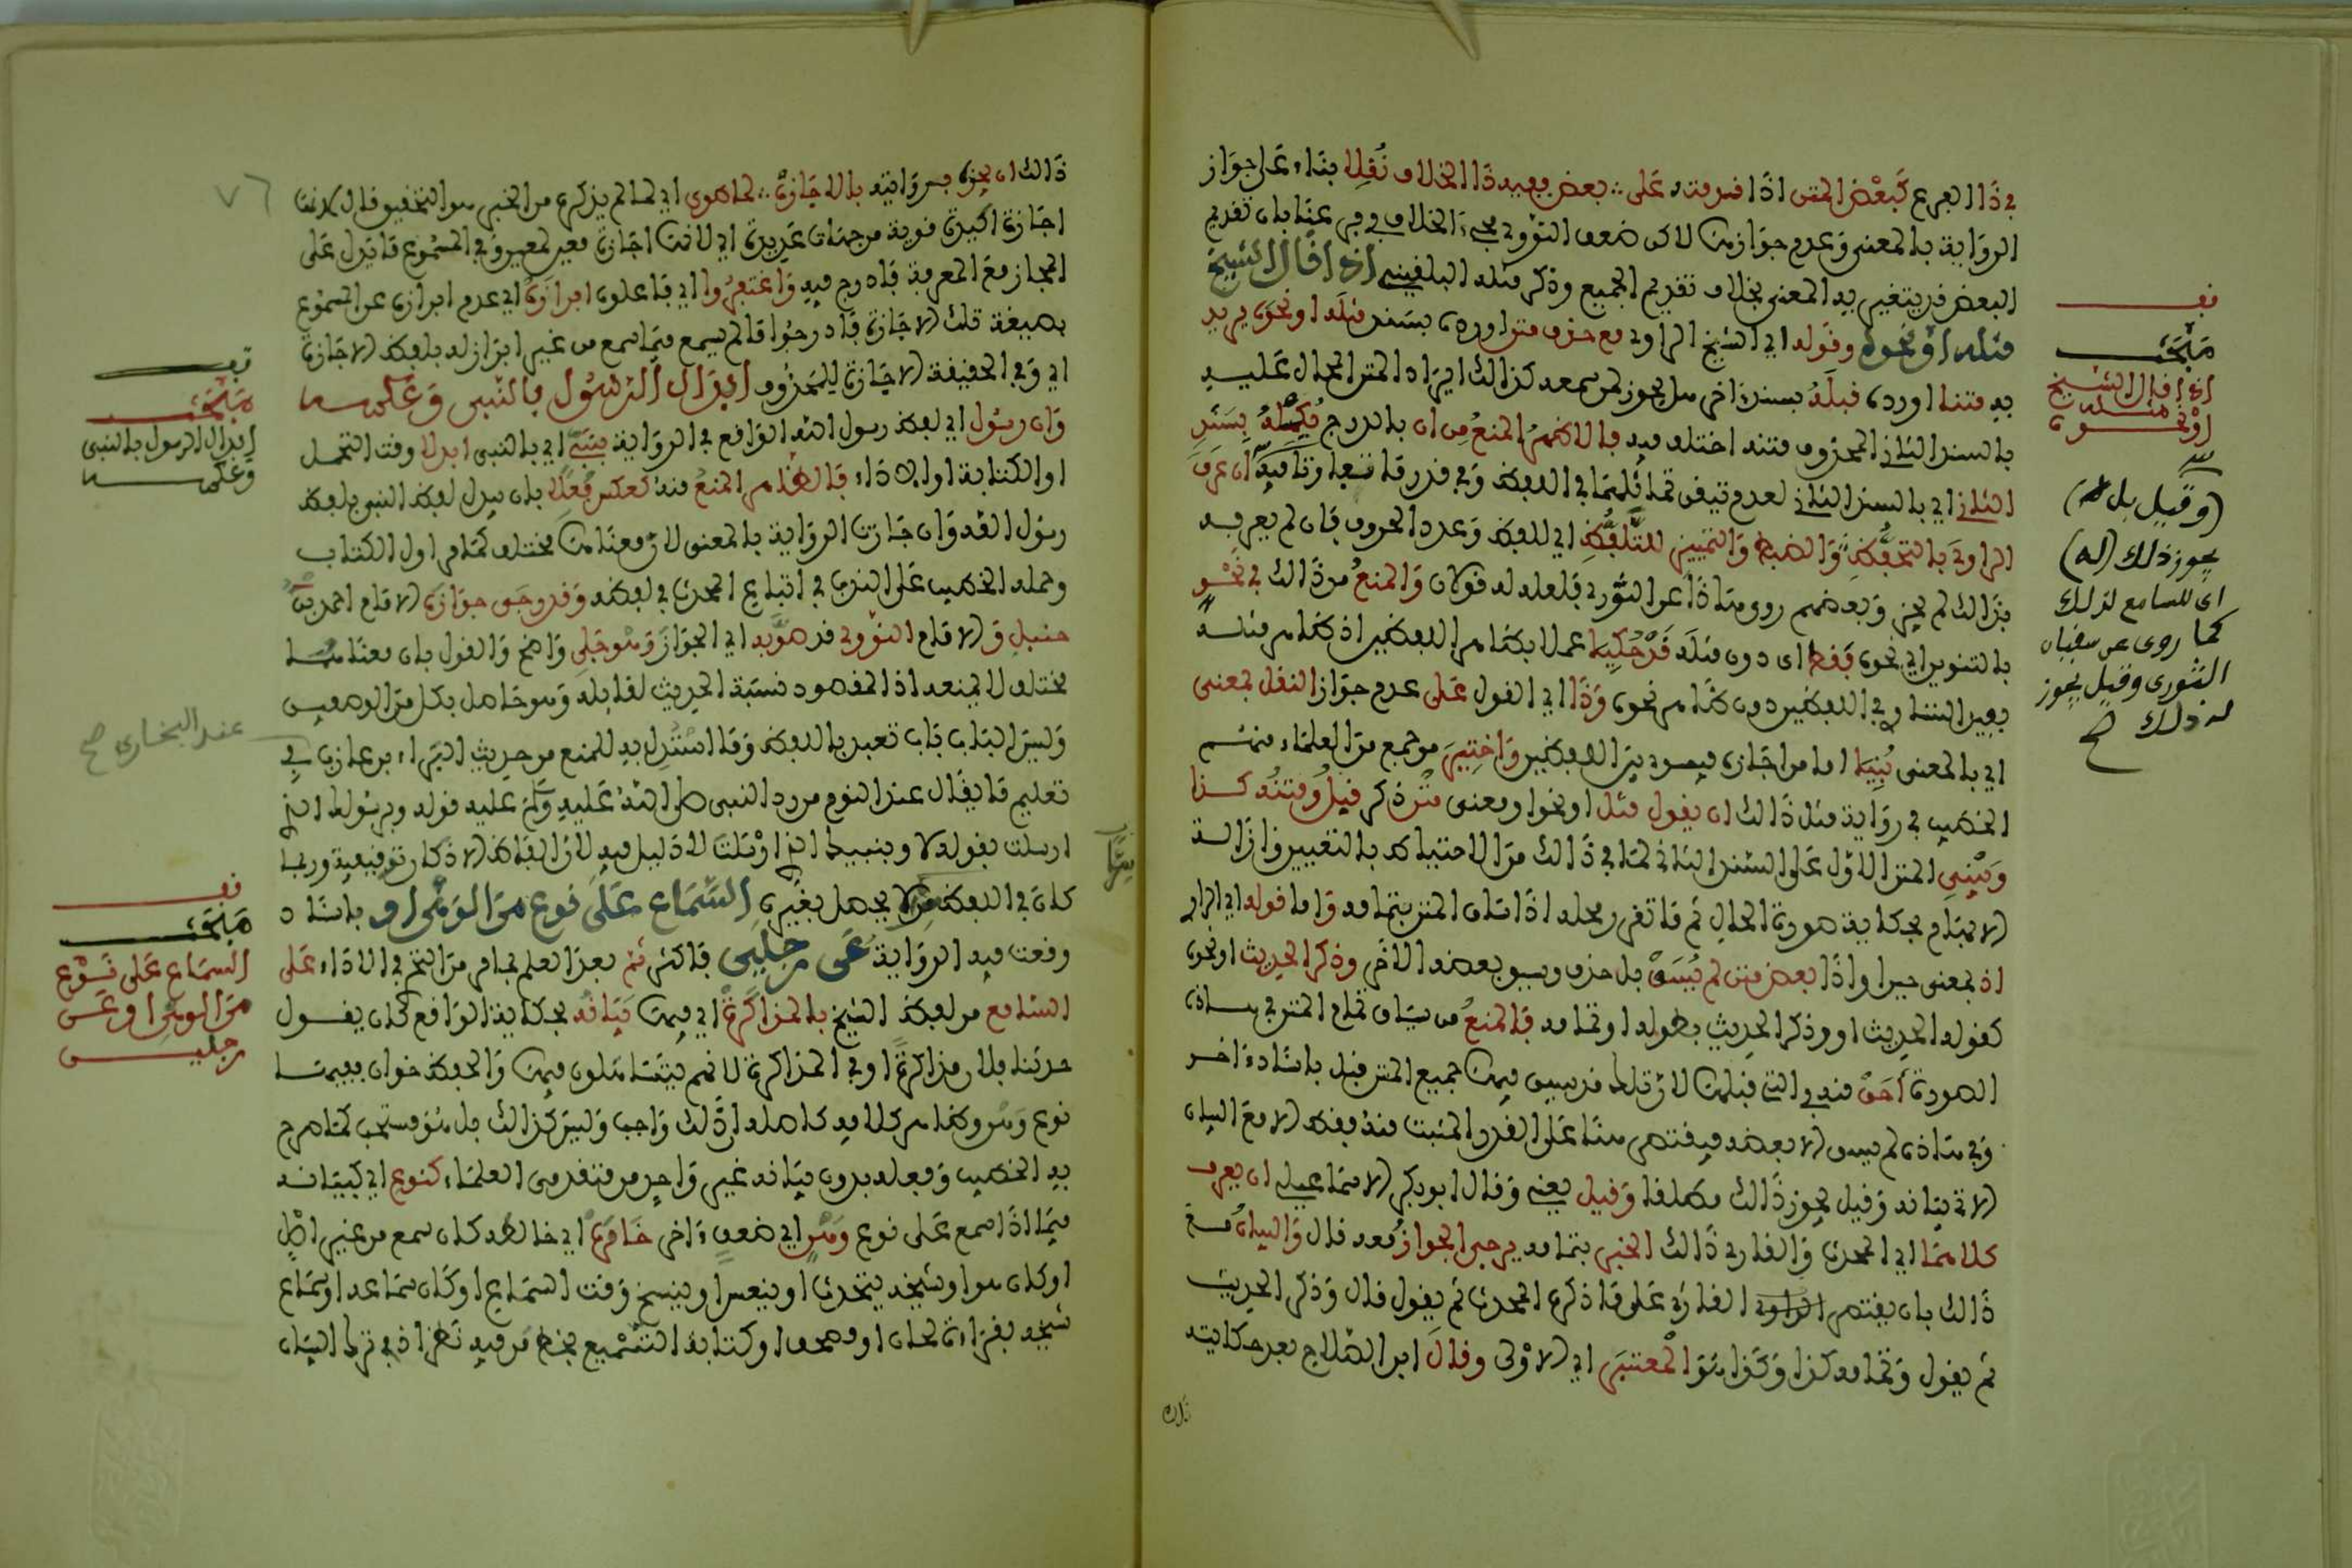 في ذا الفرع كبعض المتن اذا قدمته على بعض ففيه ذا الخلاف نقلا بناء على جواز
الرواية بالمعنى وعدم جوازها لاكن ضعف النووي مجيء الخلاف وفرق عنها بان تقديم
البعض قد يتغير به المعنى بخلاف تقديم الجميع وذكر مثله البلقيني اذا قال الشيخ
مثله او نحوه وقوله اي الشيخ الراوي مع حذف متن اورده بسند مثله او نحوه يريد
به متنا اورده قبله بسند اخر هل يجوز لمن سمعه كذالك ايراد المتن المحال عليه
بالسند الثاني المحذوف متنه اختلف فيه فالاظهر المنع من ان بالدرج يكمله بسند
الثاني اي بالسند الثاني لعدم تيقن تماثلهما في اللفظ وفي قدر ما تفاوتا فيه ان عرف
الراوي بالتحفظ والضبط والتمييز للتلفظ اي للفظ وعدد الحروف فان لم يعرف
بذالك لم يجز وبعضهم روى هذا عن الثوري فلعله له قولان والمنع من ذالك في نحو
بالتنوين اي نحوه فقط اي دون مثله قد حكيا عملا بظاهر اللفظين اذ ظاهر مثله
يفيد التساوي في اللفظين دون ظاهر نحوه وذا اي القول على عدم جواز النقل لمعنى
اي بالمعنى بنيا اما من اجازه فيسوي بين اللفظين واختير من جمع من العلماء منهم
الخطيب في رواية مثل ذالك ان يقول مثل او نحو او معنى متن ذكر قبل ومتنه كذا
ويبني المتن الاول على السند الثاني لما في ذالك من الاحتياط بالتعيين وازالة
الايهام بحكاية صورة الحال ثم ما تقرر محله اذا ساق المتن بتمامه واما قوله اي الراوي
اذ بمعنى حين او اذا بعض متن لم يسق بل حذف وسيق بعضه الاخر وذكر الحديث او نحوه
كقوله الحديث او وذكر الحديث بطوله او تمامه فالمنع من سياق تمام المتن في هاذه
الصورة احق منه في التي قبلها لان تلك قد سيق فيها جميع المتن قبل باسناد ءاخر
وفي هاذه لم يسق الا بعضه فيقتصر هنا على القدر المثبت منه فقط الا مع البيان
الاتي بيانه وقيل يجوز ذالك مطلقا وقيل يعني وقال ابو بكر الاسماعيلي ان يعرف
كلاهما اي المحدث والقارئ ذالك الخبر بتمامه يرجى الجواز معه قال والبيان مع
ذالك بان يقتص القارئ على ما ذكره المحدث ثم يقول قال وذكر الحديث
ثم يقول وتمامه كذا وكذا هو المعتبر اي الاولى وقال ابن الصلاح بعد حكايته
ذالك
قف
مبحث
اذا قال الشيخ
مثله
او نحوه
(وقيل بل له)
يجوز ذلك (له)
اي للسامع لذلك
كما روى عن سفيان
الثوري وقيل يجوز
له ذلك صح
ذالك ان يجز فبروايته بالاجازة لما طوى اي لما لم يذكره من الخبر هو التحقيق قال لاكنها
اجازة اكيدة قوية من جهات عديدة اي لانها اجازة معين لمعين وفي المسموع ما يدل على
المجاز مع المعرفة به ادرج فيه واغتفروا اي فاعلوه افرازه اي عدم افرازه عن المسموع
بصيغة تلك الاجازة فادرجوا ما لم يسمع فيما سمع من غير افراز له بلفظ الاجازة
اي وفي الحقيقة الاجازة للمحذوف ابدال الرسول بالنبي وعكسه
وان رسول اي لفظ رسول الله الواقع في الرواية بنبي اي بالنبي ابدلا وقت التحمل
او الكتابة او الاداء فالظاهر المنع منه كعكس فعلا بان يبدل لفظ النبي بلفظ
رسول الله وان جازت الرواية بالمعنى لان معناهما مختلف كما مر اول الكتاب
وحمله الخطيب على الندب في اتباع المحدث في لفظه وقد رجي جوازه الامام احمد بن
حنبل والامام النووي قد صوبه اي الجواز وهو جلي واضح والقول بان معناهما
مختلف لا يمنعه اذ المقصود نسبة الحديث لقائله وهو حاصل بكل من الوصفين
وليس الباب باب تعبد باللفظ وما استدل به للمنع من حديث البراء بن عازب في
تعليم ما يقال عند النوم من رد النبي صلى الله عليه وسلم عليه قوله وبرسولك الذي
ارسلت بقوله لا وبنبيك الذي ارسلت لا دليل فيه لان الفاظ الاذكار توقيفية وربما
كان في اللفظ سر لا يحصل بغيره السماع على نوع من الوهن او باسناد
وقعت فيه الرواية عن رجلين فاكثر ثم بعد العلم بما مر من التحري في الاداء على
السامع من لفظ الشيخ بالمذاكرة اي فيها بيانه بحكاية الواقع كان يقول
حدثنا فلان مذاكرة او في المذاكرة لانهم يتساهلون فيها والحفظ خوان فبينهما
نوع وهن وظاهر كلامه كاصله ان ذالك واجب وليس كذالك بل هو مستحب كما صرح
به الخطيب وفعله بدون بيانه غير واحد من متقدمي العلماء كنوع اي كبيانه
فيما اذا سمع على نوع وهن اي ضعف ءاخر خامره اي خالطه كان سمع من غير اصل
او كان هو او شيخه يتحدث او ينعس او ينسخ وقت السماع او كان سماعه او سماع
شيخه بقراءة لحان او مصحف او كتابة التسميع بخط من فيه نظر اذ في ترك البيان
٧٦
قف
مبحث
ابدال الرسول بالنبي
وعكسه
عند البخاري صح
قف
مبحث
السماع على نوع
من الوهن او عن
رجلين